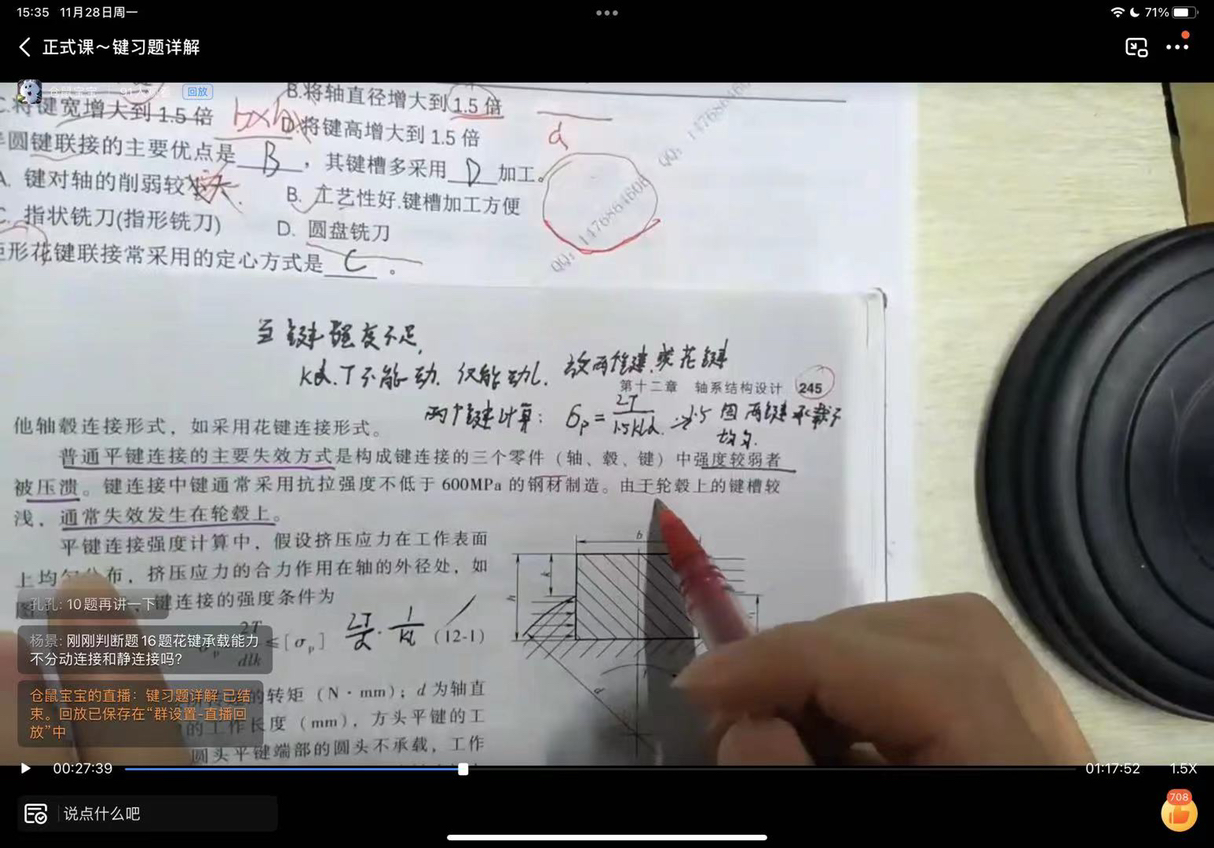 15:35 11月28日周一
71%
正式课～键习题详解
仓鼠宝宝
回放
C.将键宽增大到1.5倍
B.将轴直径增大到1.5倍
bxh
D.将键高增大到1.5倍
d
半圆键联接的主要优点是 B ，其键槽多采用 D 加工。
A. 键对轴的削弱较
B. 工艺性好.键槽加工方便
C. 指状铣刀(指形铣刀)
D. 圆盘铣刀
矩形花键联接常采用的定心方式是 C 。
QQ: 1476864608
当键强度不足，
kd.T不能动. 仅能动l. 故两个键.或花键
第十二章 轴系结构设计 245
两个键计算: σp = 2T/1.5kld. →1.5 因两键承载不
均匀.
他轴毂连接形式，如采用花键连接形式。
普通平键连接的主要失效方式是构成键连接的三个零件（轴、毂、键）中强度较弱者
被压溃。键连接中键通常采用抗拉强度不低于600MPa的钢材制造。由于轮毂上的键槽较
浅，通常失效发生在轮毂上。
平键连接强度计算中，假设挤压应力在工作表面
上均匀分布，挤压应力的合力作用在轴的外径处，如
图
键连接的强度条件为
2T/dlk ≤[σp] 2T/d · 1/kl (12-1)
的转矩（N·mm）；d为轴直
的工作长度（mm），方头平键的工
圆头平键端部的圆头不承载，工作
b
h
k
d
孔孔: 10题再讲一下
杨景: 刚刚判断题16题花键承载能力
不分动连接和静连接吗?
仓鼠宝宝的直播：键习题详解 已结
束。回放已保存在“群设置-直播回
放”中
00:27:39
01:17:52
1.5X
说点什么吧
708